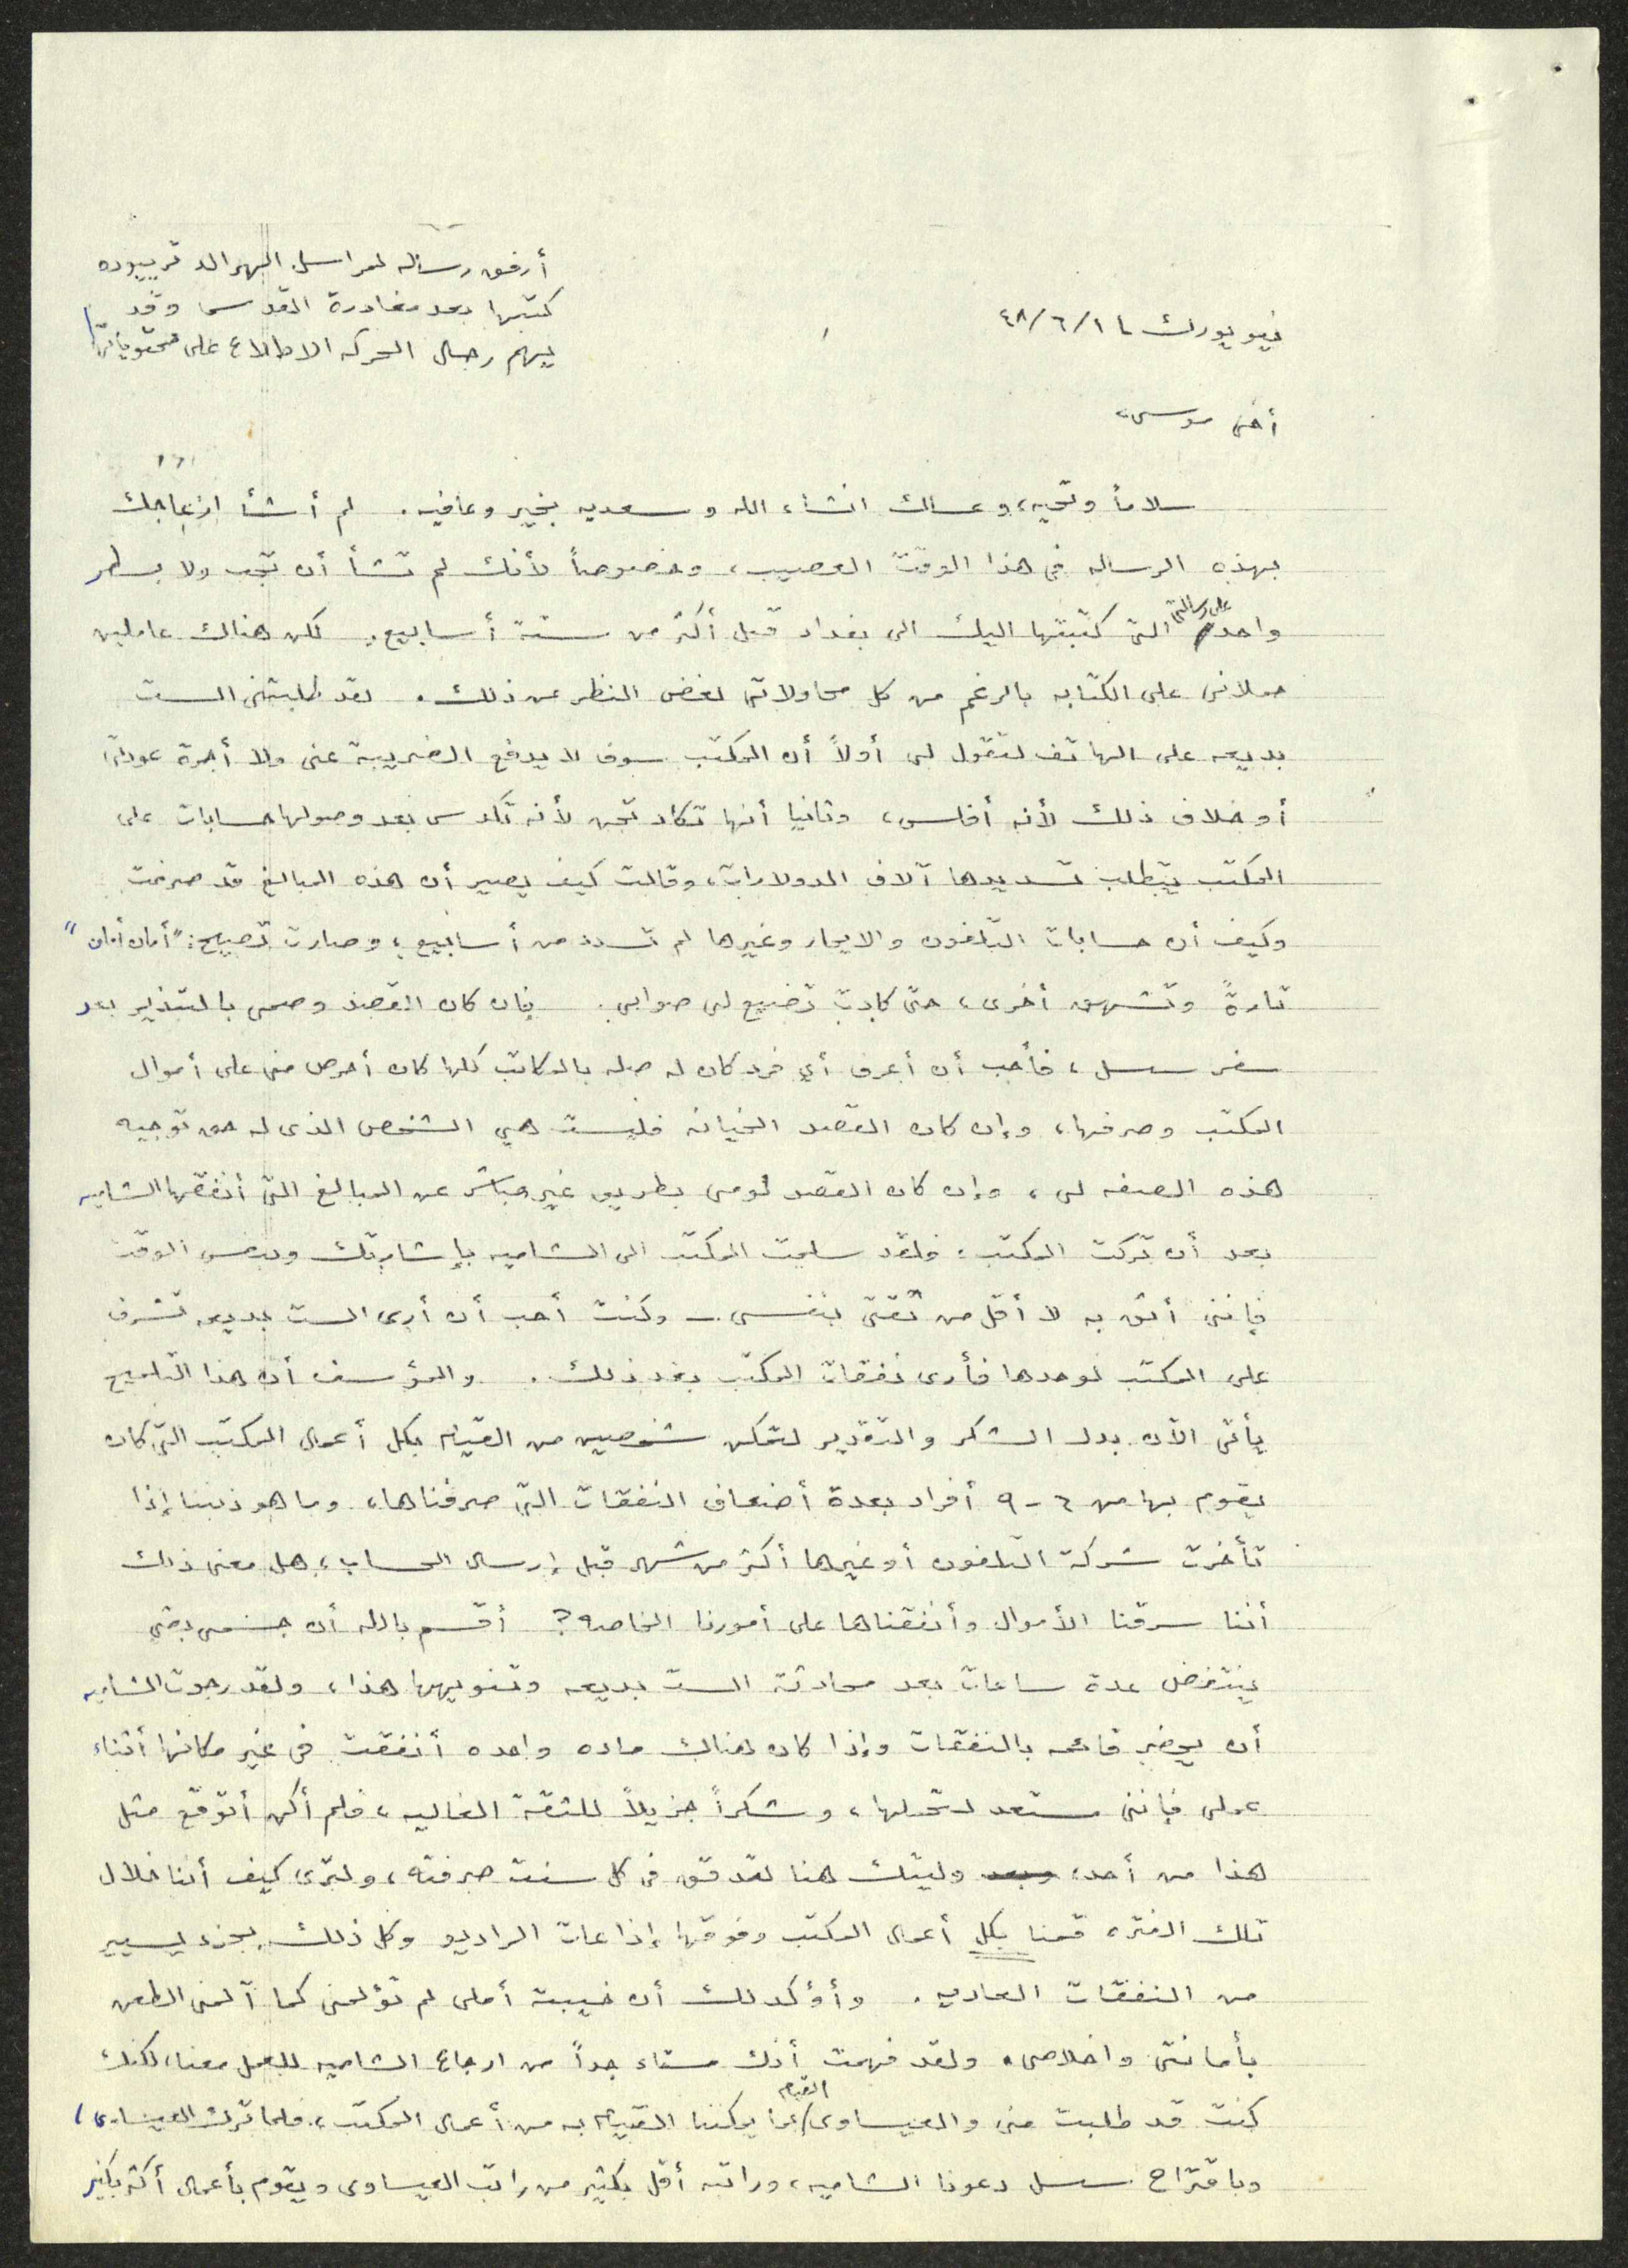 أرفق رساله لمراسل الهرالد تريبيون
كتبها بعد مغادرة القدس وقد
يهم رجال الحركه الاطلاع على محتوياتها
نيويورك ٤٨/٦/١
أخي موسى،
سلاماً وتحيه، وعساك انشاء الله وسعديه بخير وعافيه. لم أشأ ازعاجك
بهذه الرساله في هذا الوقت العصيب، وخصوصاً لأنك لم تشأ أن تجب ولا بسطر
واحد على رسالتي التي كتبتها اليك الى بغداد قبل أكثر من ستة أسابيع. لكن هناك عاملين
حملاني على الكتابه بالرغم من كل محاولاتي لغض النظر عن ذلك. لقد طلبتني الست
بديعه على الهاتف لتقول لي أولاً أن المكتب سوف لا يدفع الضريبة عني ولا أجرة عودتي
أو خلاف ذلك لأنه أفلس، وثانيا أنها تكاد تجن لأنه تكدس بعد وصولها حسابات على
المكتب يتطلب تسديدها آلاف الدولارات، وقالت كيف يصير أن هذه المبالغ قد صرفت
وكيف أن حسابات التلفون والايجار وغيرها لم تسدد من أسابيع، وصارت تصيح: "أمان أمان"
تارةً وتشهق أخرى، حتى كادت تضيع لي صوابي. فإن كان القصد وصمي بالتبذير بعد
سفر سسل، فأحب أن أعرف أي فرد كان له صله بالمكاتب كلها كان أحرص مني على أموال
المكتب وصرفها، وإن كان القصد الخيانه فليست هي الشخص الذي له حق توجيه
هذه الصفه لي، وإن كان القصد لومي بطريق غير مباشر عن المبالغ التي أنفقها الشاميه
بعد أن تركت المكتب، فلقد سلمت المكتب الى الشاميه بإشارتك وبنفس الوقت
فإنني أثق به لا أقل من ثقتي بنفسي – وكنت أحب أن أرى الست بديعه تشرف
على المكتب لوحدها فأرى نفقات المكتب بعد ذلك. والمؤسف أن هذا التلميح
يأتي الآن بدل الشكر والتقدير لتمكن شخصين من القيام بكل أعمال المكتب التي كان
يقوم بها من ٦ - ٩ أفراد بعدة أضعاف النفقات التي صرفناها، وما هو ذنبنا إذا
تأخرت شركة التلفون أو غيرها أكثر من شهر قبل إرسال الحساب، هل معنى ذلك
أننا سرقنا الأموال وأنفقناها على أمورنا الخاصه؟ أقسم بالله أن جسمي بقي
ينتفض عدة ساعات بعد محادثة الست بديعه وتنويهها هذا، ولقد رجوت الشاميه
أن يحضر قائمه بالنفقات وإذا كان هناك ماده واحده أنفقت في غير مكانها أثناء
عملي فإنني مستعد لتحملها، وشكراً جزيلاً للثقة الغاليه، فلم أكن أتوقع مثل
هذا من أحد، وليتك هنا لتدقق في كل سنت صرفته، ولترى كيف أننا خلال
تلك الفتره قمنا بكل أعمال المكتب وفوقها إذاعات الراديو وكل ذلك بجزء يسير
من النفقات العاديه. وأؤكد لك أن خيبة أملي لم تؤلمني كما آلمني الطعن
بأمانتي واخلاصي. ولقد فهمت أنك مستاء جداً من ارجاع الشاميه للعمل معنا، لكنك
كنت قد طلبت مني والعيساوي القيام بما يمكننا القيام به من أعمال المكتب، فلما ترك العيساوي،
وباقتراح سسل دعونا الشاميه، وراتبه أقل بكثير من راتب العيساوي ويقوم بأعمال أكثر بكثير